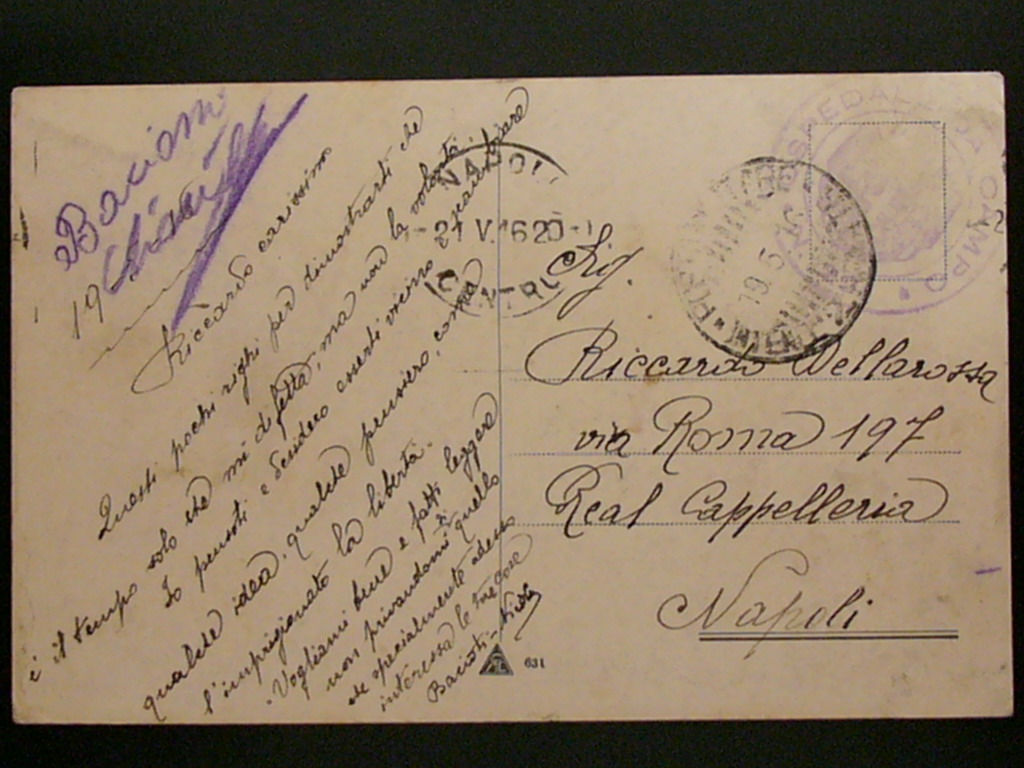 Bacioni
19
Riccardo carissimo
Questi pochi righi per dimostrarti che
è il tempo solo che mi difetta, ma non la volontà.
Io pensoti e desidero esserti vicino e scambiare
qualche idea, qualche pensiero, come
l'imprigionato la libertà.
Vogliami bene e fatti leggere
non privandomi di quello
se specialmente adesso
interessa le tue cose
Bacioti
NAPOLI
-21.V.16 20-
CENTRO
OSPEDALE DA CAMPO
19 5 16
Sig.
Riccardo Dellarossa
via Roma 197
Real Cappelleria
Napoli
631